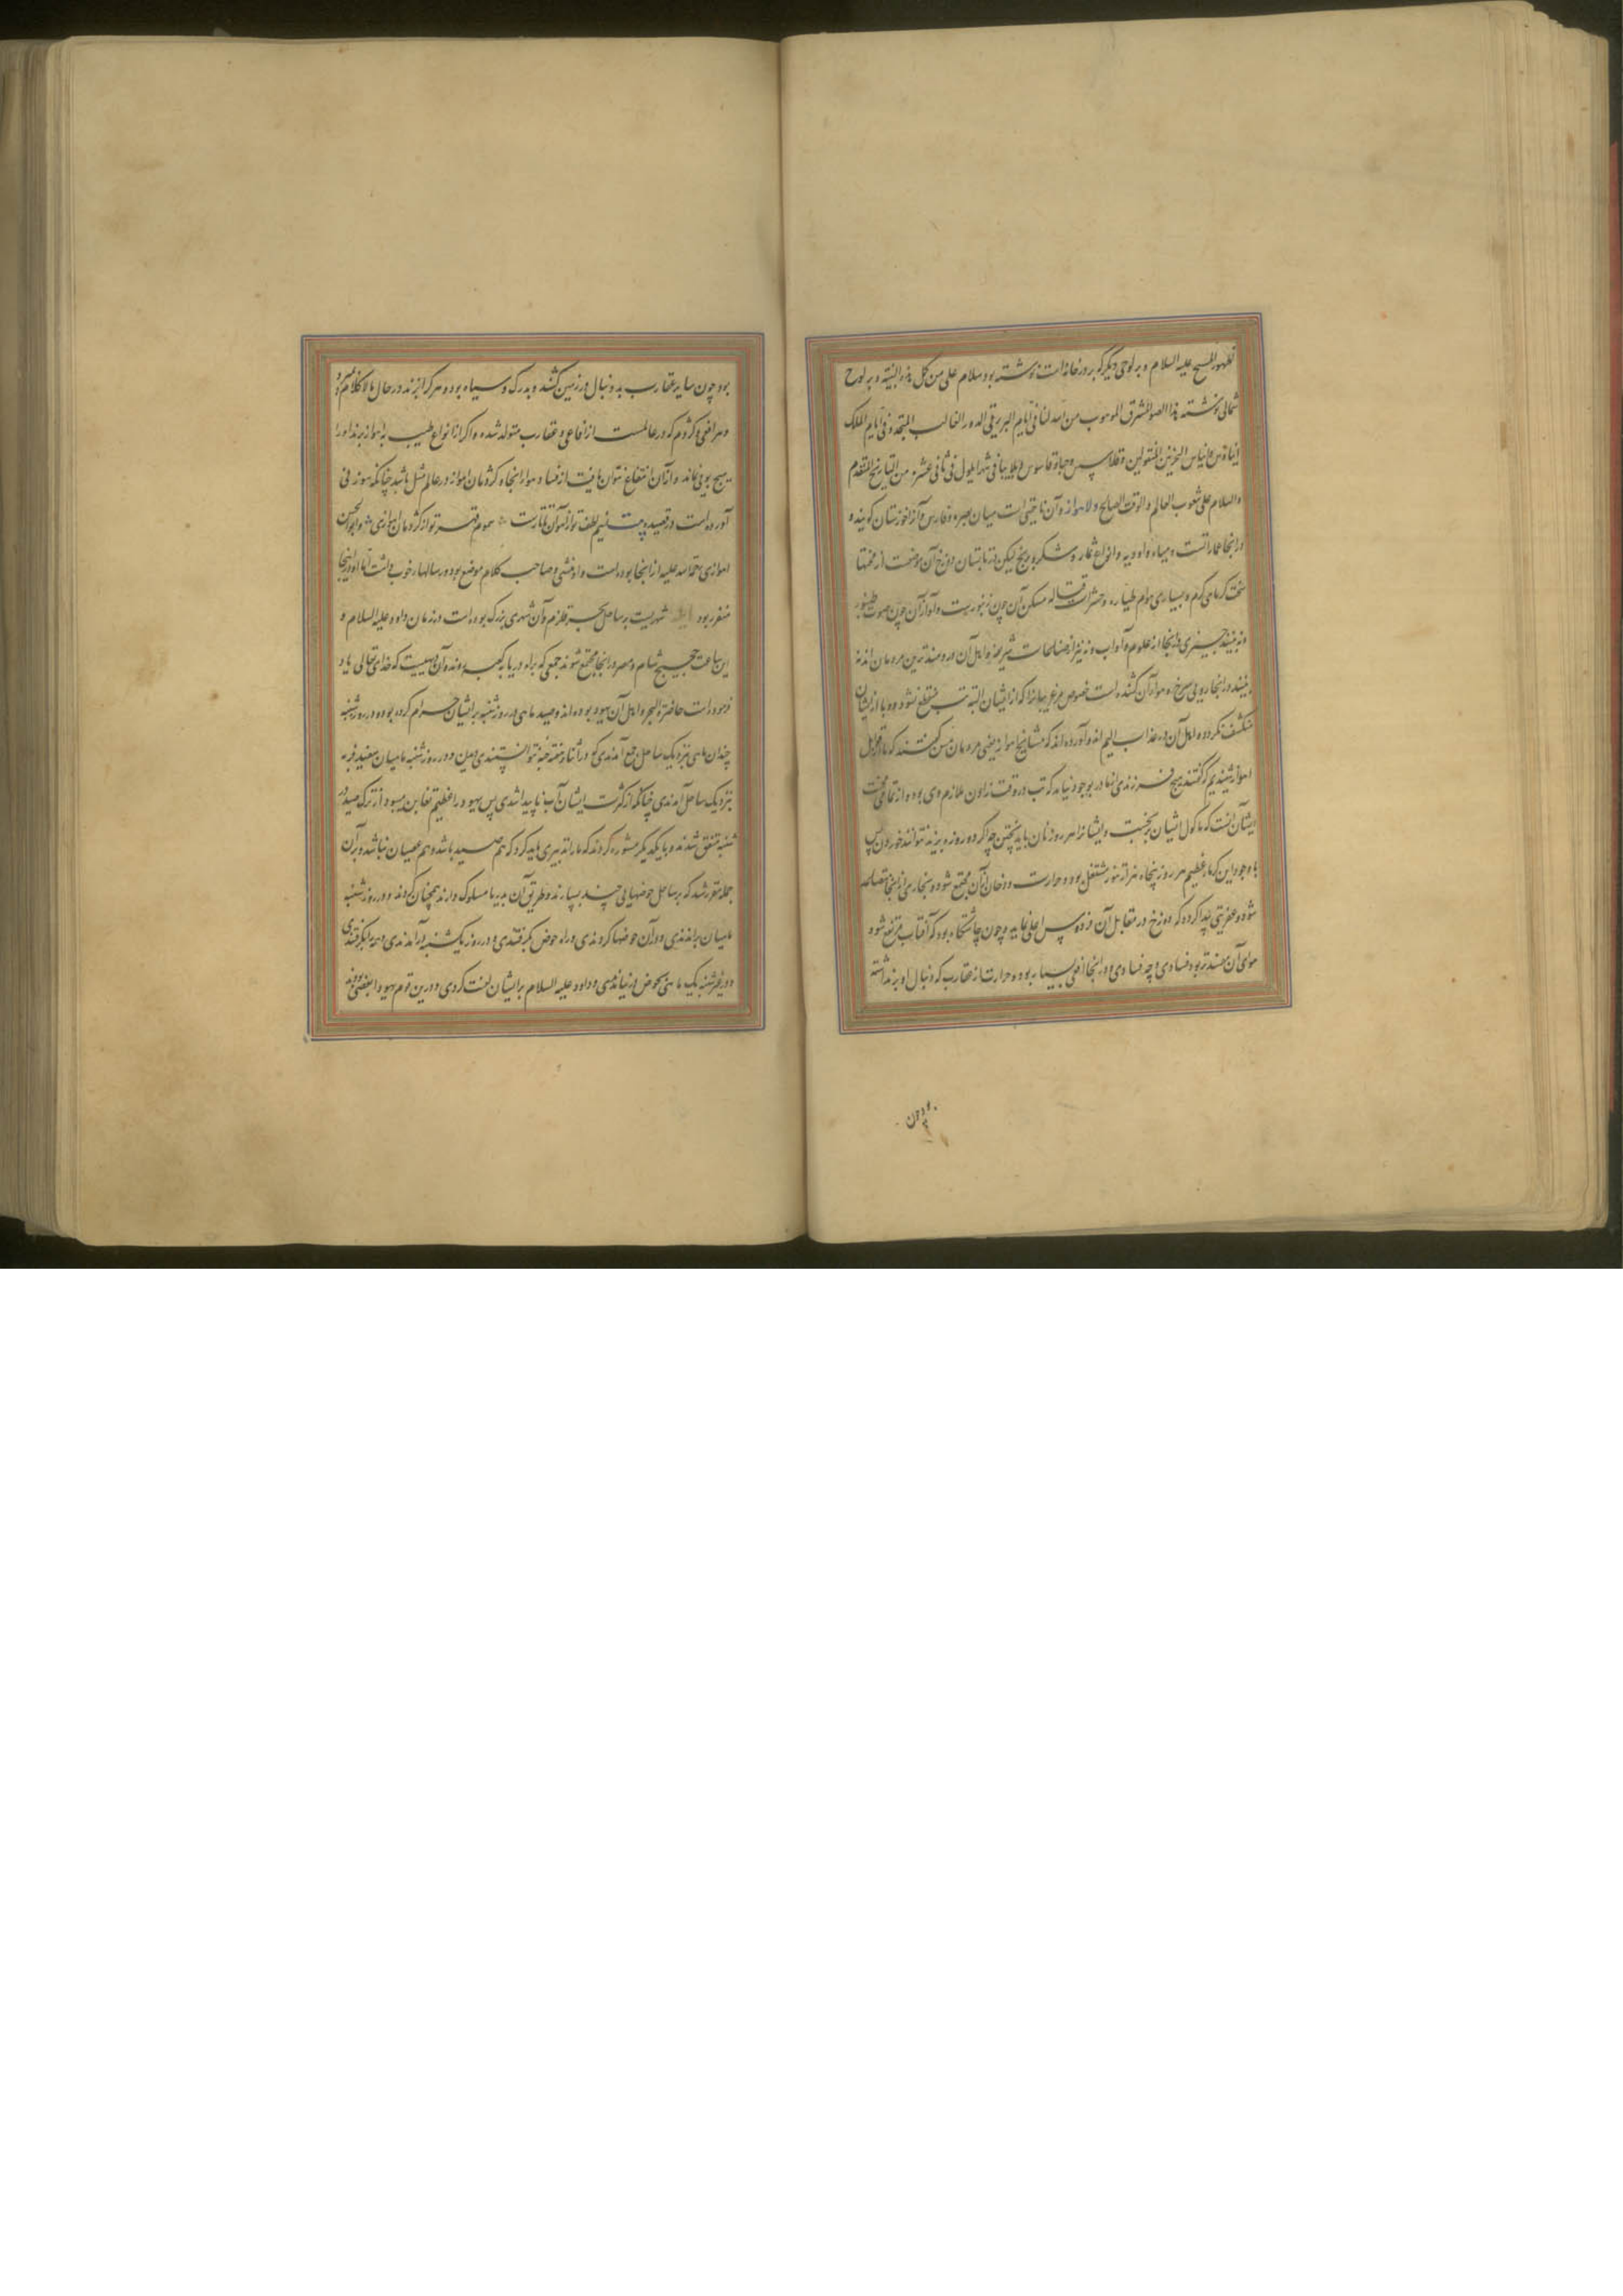 ظهور المسیح علیه السلام و بر لوحی دیگر که بر درخانه است نوشته بود سلام علی من کل هذه البنیه و بر لوح
شمالی نوشته هذا الصو المشرق الموهوب من الله لنا فی ایام البربریقی الدور الغالب المتجد و فی ایام الملک
والسلام علی شعوب العالم و الوقت الصالح و لاهواز و آن ناحیتی است میان بصره و فارس و آنرا خوزستان گویند و
در اینجا عماراتست و میاه و اودیه و انواع ثمار و شکر و برنج لیکن در تابستان دوزخ آن موضعست از محنتها
سخت گرمای گرم و بسیاری هوام طیاره و حشرات قتاله مسکن آن چون زنبورست و آواز آن چون صوت طنبور
و نه بینند چیزی در اینجا از علوم و آداب و نه نیز از صناعات شریفه و اهل آن دردمندترین مردمان اند نه
بینند در اینجا رویی سرخ و هواء آن کشنده است خصوص مر غریبانرا که از ایشان البته تب منقطع نشود و وبا از ایشان
منکشف نگردد و اهل آن در عذاب الیم اند و آورده اند که مشایخ اهواز یعنی مردمان مسن گفتند که ما از قوابل
اهواز شنیدیم که گفتند هیچ فرزندی اینجا در بوجود نیاید که تب در وقت زادن ملازم وی بود و از تمامی محنت
ایشان آنست که ماکول ایشان برنجست و ایشانرا هر روز نان باید پختن چه اگر دو روزه بپزند نتوانند خوردن پس
با وجود این گرماء عظیم هر روز پنجاه هزار تنور مشتعل بود و حرارت و دخان آن مجتمع شود و بخاری از اینجا متصاعد
شود و عفریتی پیدا کرده که دوزخ در مقابل آن فردوس اعلی نماید و چون چاشتگاه بود که آفتاب مرتفع شود
هوای آن بهنند تر بود فسادی و چه فسادی و در اینجا افعی بسیار بود و حرارت از عقارب که دنبال او بر نداشته
بود چون
بود چون سایر عقارب بد و نبال در زمین کشند و بدرک و سیاه بود و هر که را بزند در حال هلاک
و هر افعی و کژدم که در عالمست از افاعی و عقارب متولد شده و اگر انواع طیب به اهواز برند او را
هیچ بویی نماند و از آن انتفاع نتوان یافت از فساد هوا و اینجا و کژدمان اهواز در عالم مثل باشد چنانکه
آورده است در قصیده بیت نسیم لطف تو از سموم قهر تو از کژدمان اهوازی و ابوالحسن
اهوازی رحمة الله علیه از اینجا بوده است و او منشی و صاحب کلام موضع بود و رسالهاء خوب داشت اما او در اینجا
متفرد بود ایله شهریست بر ساحل بحر قلزم و آن شهری بزرگ بوده است در زمان داود علیه السلام و
این ساعت حجیج شام و مصر در اینجا مجتمع شوند جمعی که براه دریا بکعبه روند و آن دیهیست که خدای تعالی یاد
فرموده است حاضرة البحر و اهل آن یهود بوده اند و صید ماهی در روز شنبه بر ایشان حرام کرده بود و در روز شنبه
چندان ماهی نزدیک ساحل جمع آمدندی که در اثناء هفته نتوانستندی دیدن و در روز شنبه ماهیان سفید فربه
نزدیک ساحل آمدندی چنانکه از کثرت ایشان آب ناپیدا شدی پس یهود را عظیم تغابن میبود از ترک صید در
شنبه متفق شدند و با یکدیگر مشوره کردند که ما را تدبیری باید کرد که هم صید باشد و هم عصیان نباشد و بر آن
جمله مقرر شد که بر ساحل حوضهایی چند بسپارند و طریق آن بدریا مسلوک دارند همچنان کردند و در روز شنبه
ماهیان براندندی و در آن حوضها کردندی و راه حوض بگرفتندی و در روز یکشنبه بر آمدندی و همه را بگرفتندی
و روز شنبه یک ماهی بحوض در نیامدی و داود علیه السلام بر ایشان لعنت کردی و درین قوم یهود بعضی بودند